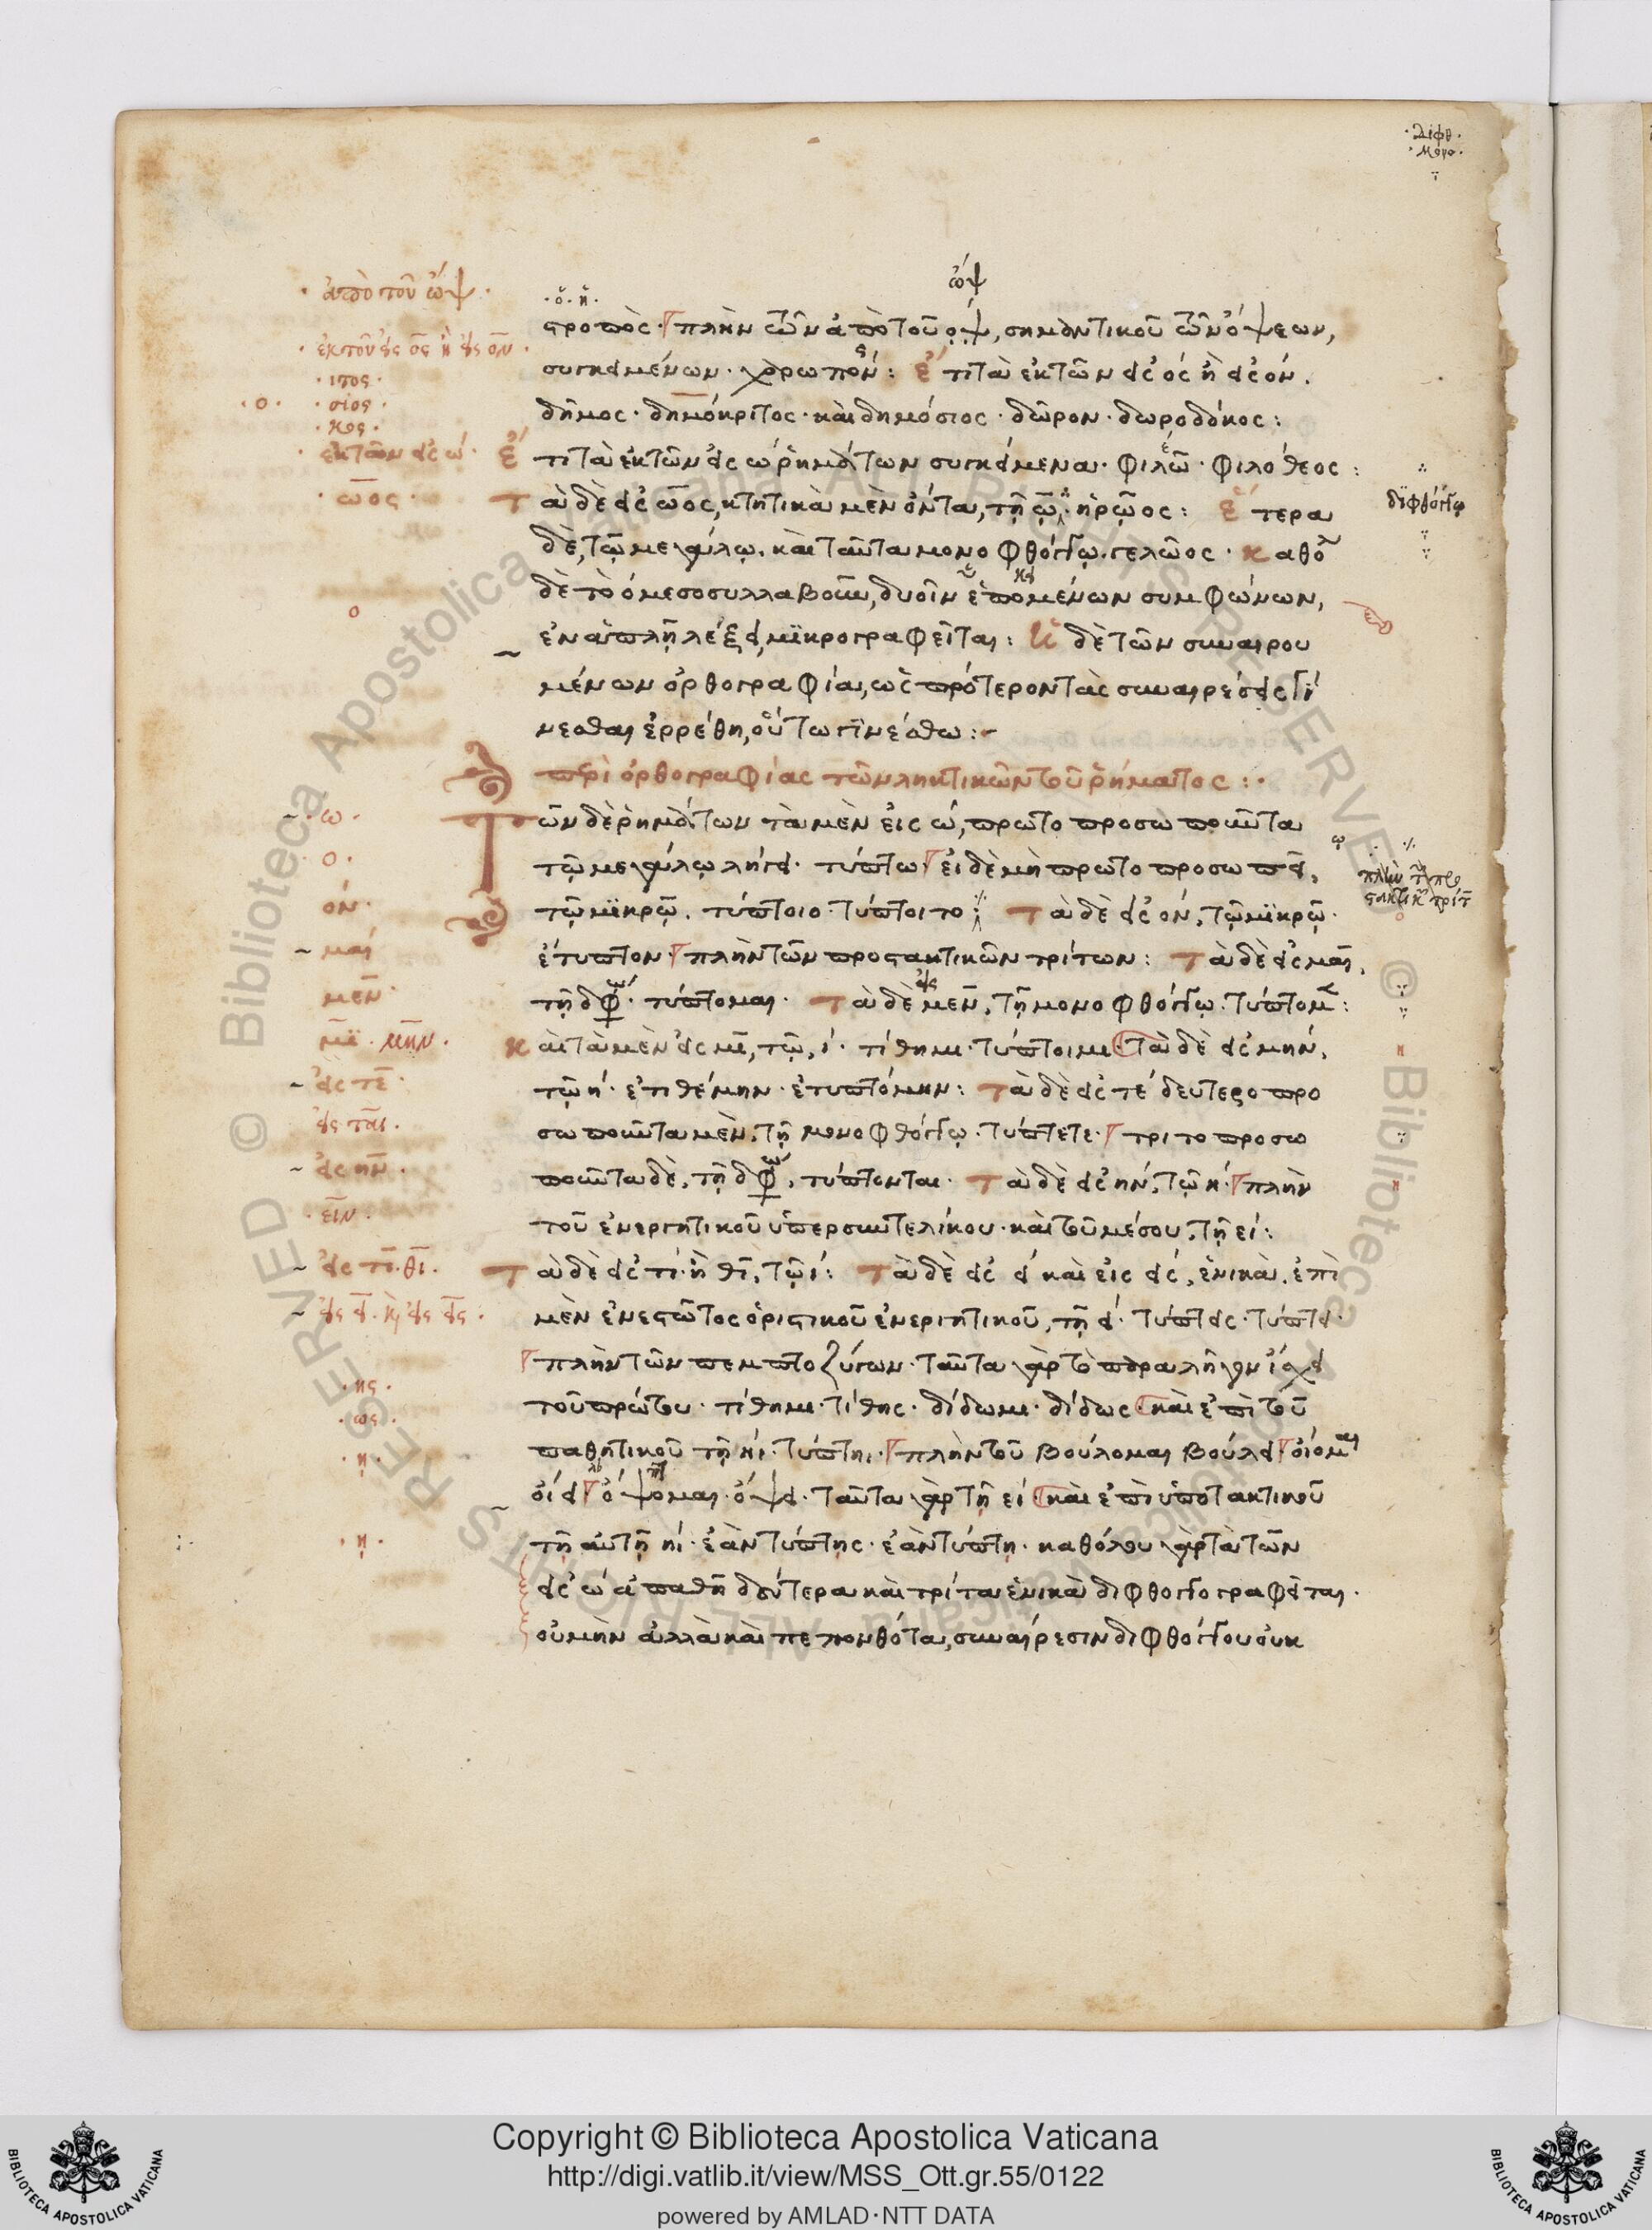 · διφθ ·
· μονο ·
ὤψ
· ἀπὸ τοῦ ὤψ ·
· ὅ · ἢ ·
στροπὸς · πλὴν τῶν ἀπὸ τοῦ ὄψ, σημαντικοῦ τῶν ὄψεων,
· ἐκ τοῦ εἰς ος ἢ εἰς ον ·
συγκειμένων · χαρωπόν : ἔτι τὰ ἐκ τῶν εἰς ος ἢ εἰς ον.
· ιτος ·
· ο · · σιος ·
δῆμος · δημόκριτος · καὶ δημόσιος · δῶρον · δωροδόκος :
· κος ·
· ἐκ τῶν εἰς ω ·
ἔτι τὰ ἐκ τῶν εἰς ω ῥημάτων συγκείμενα · φιλῶ · φιλόθεος :
· ωος ·
Τὰ δὲ εἰς ωος, κτητικὰ μὲν ὄντα, τῇ ῳ · ἡρῷος : ἕτερα
διφθόγγῳ
δὲ, τῷ μεγάλῳ. καὶ ταῦτα μονοφθόγγῳ. γελῶος · καθό
δὲ τὸ ο μεσοσυλλαβοῦν, δυοῖν ἑπομένων συμφώνων,
ο
ἐν ἁπλῇ λέξει, μικρογραφεῖται : Ἡ δὲ τῶν συναιρου
μένων ὀρθογραφία, ὡς πρότερον τὰς συναιρέσεις γί
νεσθαι ἐρρέθη, οὕτω γινέσθω :
περὶ ὀρθογραφίας τῶν ληκτικῶν τοῦ ῥήματος :
· ω ·
Τῶν δὲ ῥημάτων τὰ μὲν εἰς ω, πρωτοπροσωποῦντα
· ο ·
τῷ μεγάλῳ λήγει · τύπτω · εἰ δὲ μὴ πρωτοπροσωπεῖ,
ον ·
τῷ μικρῷ. τύπτοιο · τύπτοιτο : Τὰ δὲ εἰς ον, τῷ μικρῷ.
μαι
ἔτυπτον · πλὴν τῶν προστακτικῶν τρίτων : Τὰ δὲ εἰς μαι,
μεν ·
τῇ διφ · τύπτομαι · Τὰ δὲ εἰς μεν, τῇ μονοφθόγγῳ · τύπτομεν :
μι · μην ·
καὶ τὰ μὲν εἰς μι, τῷ, ι · τίθημι · τύπτοιμι · Τὰ δὲ εἰς μην,
εἰς τε ·
τῷ η · ἐτιθέμην · ἐτυπτόμην : Τὰ δὲ εἰς τε δευτεροπρο
εἰς ται ·
σωποῦντα μὲν, τῇ μονοφθόγγῳ · τύπτετε · τριτοπροσω
εἰς ην ·
ποῦντα δὲ, τῇ διφ, τύπτονται · Τὰ δὲ εἰς ην, τῷ η · πλὴν
· ειν ·
τοῦ ἐνεργητικοῦ ὑπερσυντελίκου · καὶ τοῦ μέσου, τῇ ει :
εἰς τι · θι ·
Τὰ δὲ εἰς τι · ἢ θι, τῷ ι : Τὰ δὲ εἰς ει καὶ εἰς εις, ἑνικὰ, ἐπὶ
εἰς ει · καὶ εἰς εις :
μὲν ἐνεστῶτος ὁριστικοῦ ἐνεργητικοῦ, τῇ ει · τύπτεις · τύπτει ·
πλὴν τῶν πεμπτοζύγων · ταῦτα γὰρ τὸ παραλῆγον ἴσχει
· ης ·
· ως ·
τοῦ πρώτου · τίθημι · τίθης · δίδωμι · δίδως · καὶ ἐπὶ τοῦ
· ῃ ·
παθητικοῦ τῇ ηι · τύπτηι · πλὴν τοῦ βούλομαι βούλει · οἴομαι
οἴει · ὄψομαι · ὄψει · ταῦτα γὰρ τῇ ει · καὶ ἐπὶ ὑποτακτικοῦ
· ῃ ·
τῇ αὐτῇ ηι · ἐὰν τύπτῃς · ἐὰν τύπτῃ · καθόλου γὰρ τὰ τῶν
εἰς ω ἀπαθῆ δεύτερα καὶ τρίτα ἑνικὰ διφθογγογραφεῖται ·
οὐ μὴν ἀλλὰ καὶ πεπονθότα, συναίρεσιν διφθόγγου οὐκ
Copyright © Biblioteca Apostolica Vaticana
http://digi.vatlib.it/view/MSS_Ott.gr.55/0122
powered by AMLAD·NTT DATA
BIBLIOTECA APOSTOLICA VATICANA
BIBLIOTECA APOSTOLICA VATICANA